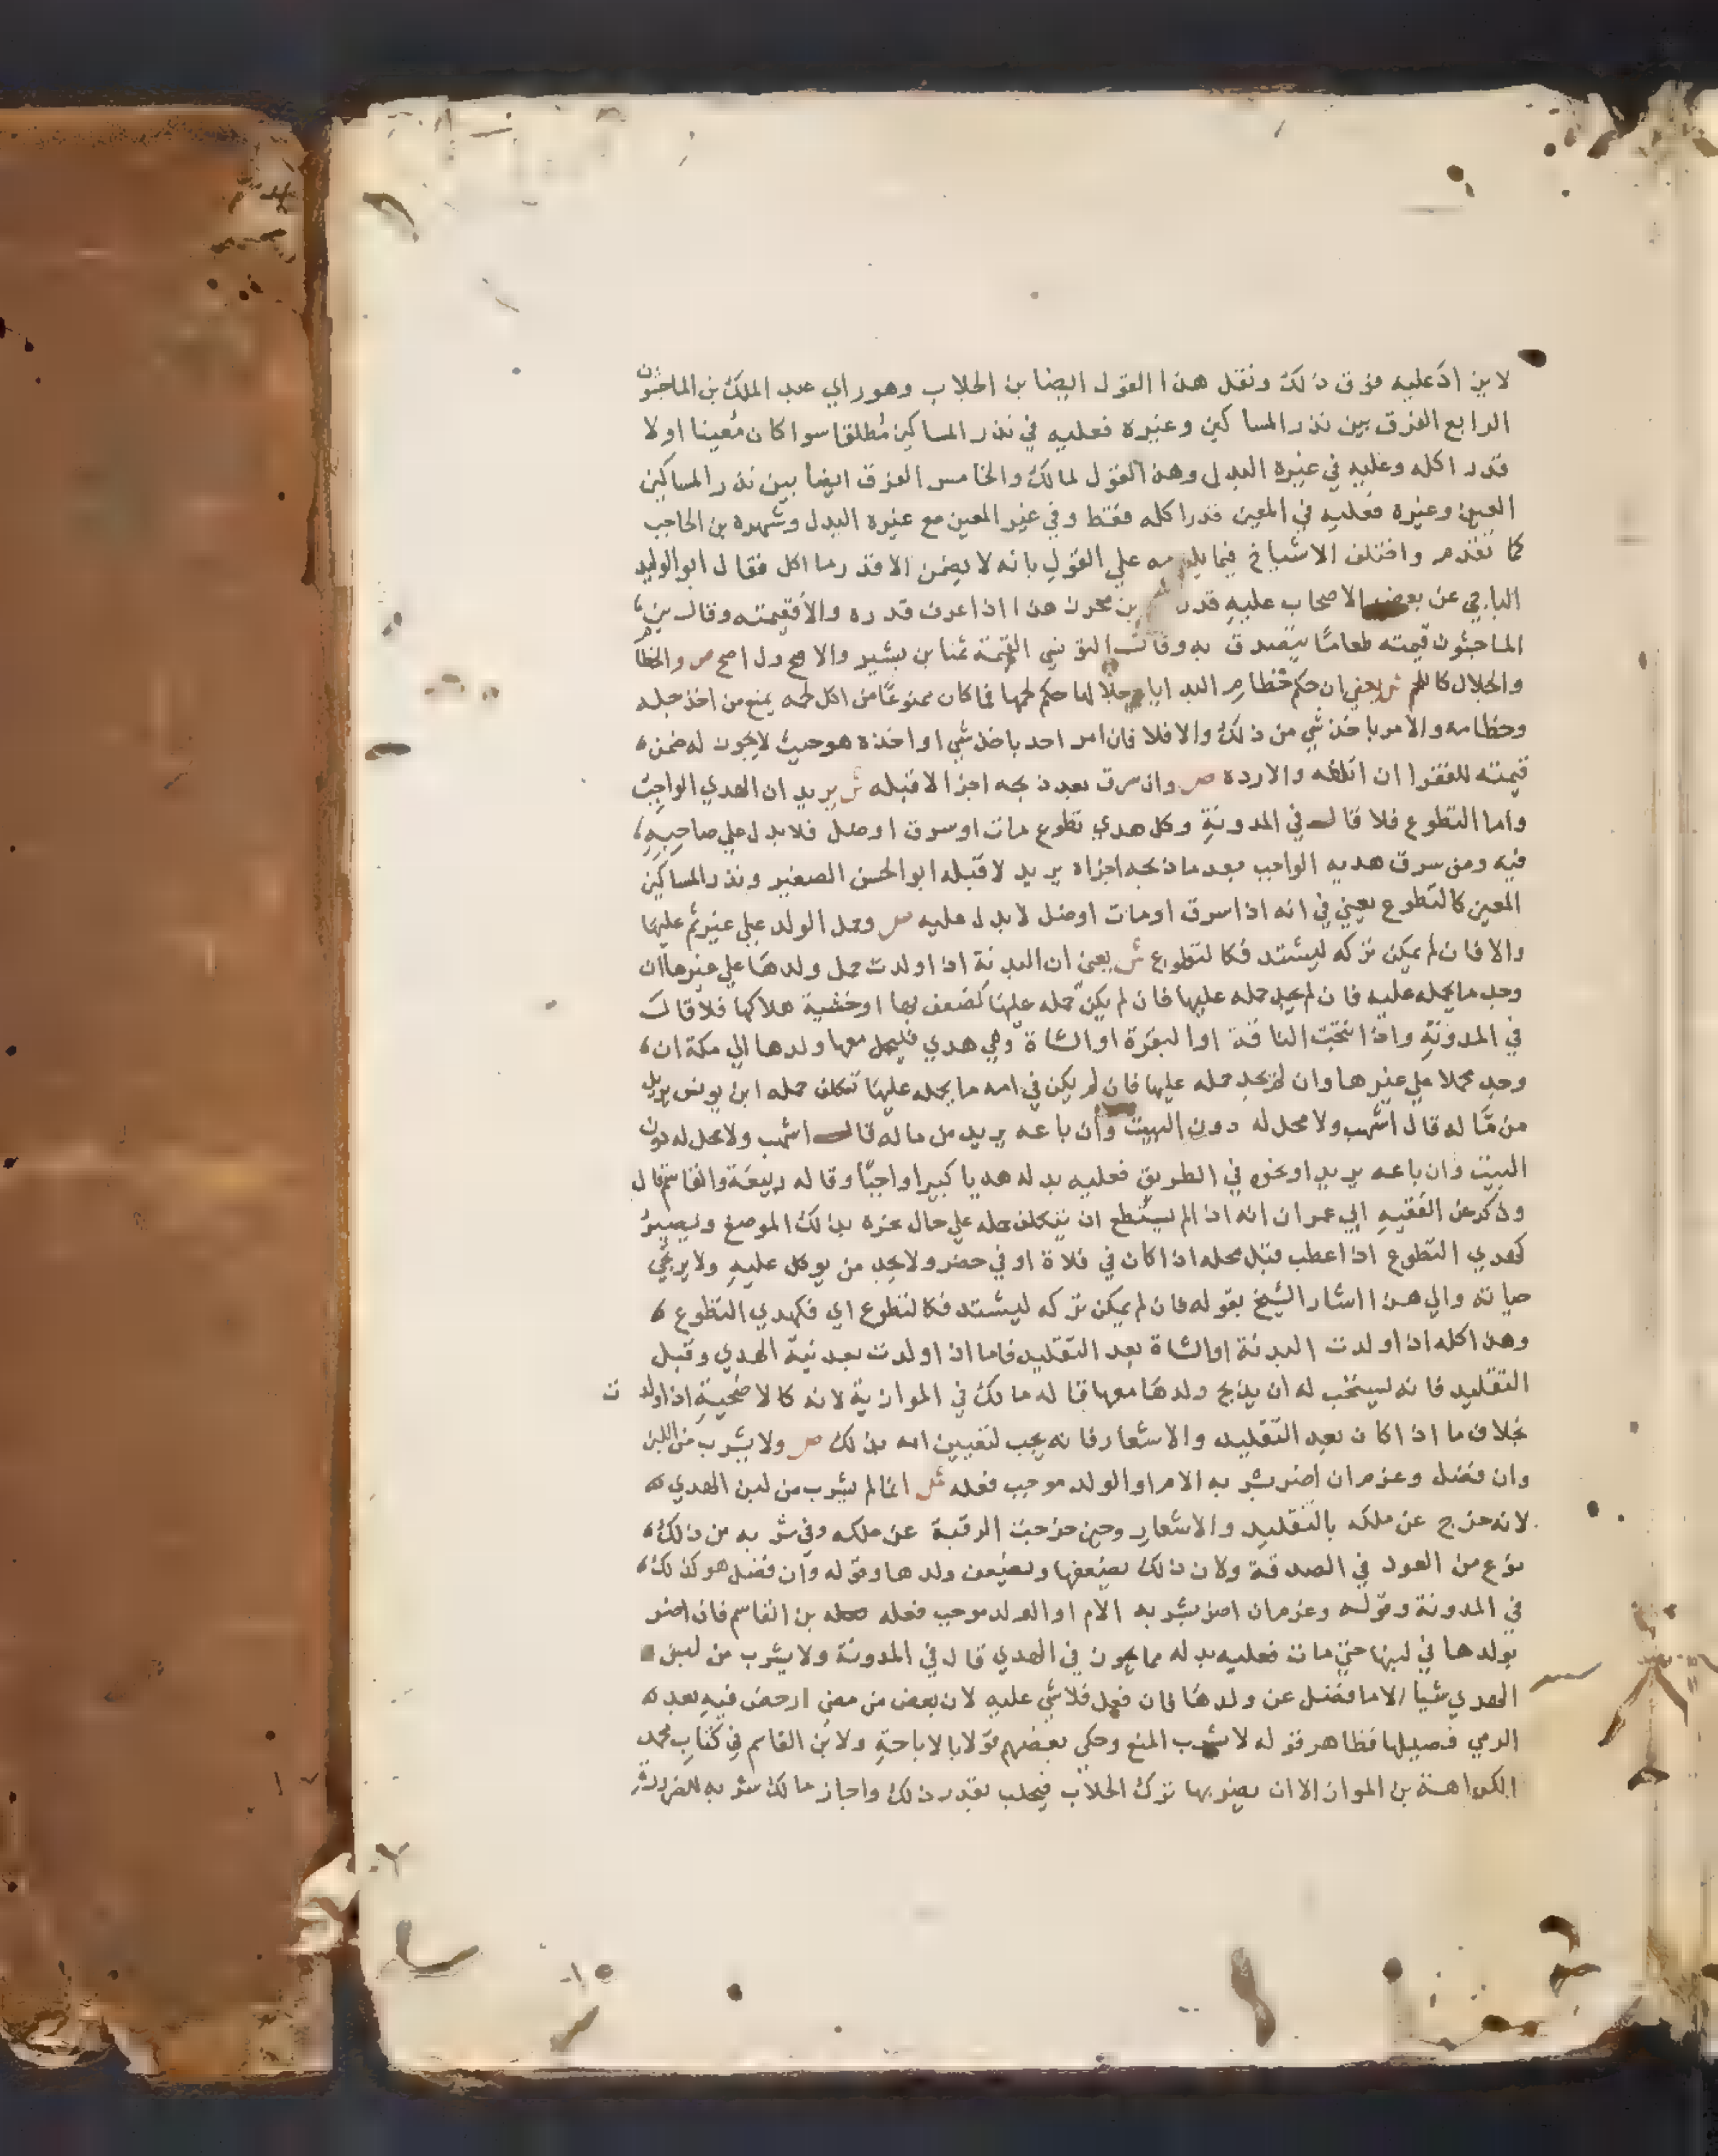 لا يزاد عليه فوق ذلك ونقل هذا القول ايضا بن الجلاب وهو راي عبد الملك بن الماجشون
الرابع الفرق بين نذر المساكين وغيره فعليه في نذر المساكين مطلقا سوا كان معينا او لا
قدر اكله وعليه في غيره البدل وهذا القول لمالك والخامس الفرق ايضا بين نذر المساكين
المعين وغيره فعليه في المعين قدر اكله فقط وفي غير المعين مع غيره البدل وشهره بن الحاجب
كما تقدم واختلف الاشياخ فيما يلزمه علي القول بانه لا يضمن الا قدر ما اكل فقال ابو الوليد
الباجي عن بعض الاصحاب عليه قدر بن محرز هذا اذا عرف قدره والا فقيمته وقال بن
الماجشون قيمته طعاما يتصدق به وقالت التونسي القيمة ثمنا بن بشير والاصح ص والخطام
والجلال كاللحم ش يعني ان حكم خطام البدايا وجلالها حكم لحمها فما كان ممنوعا من اكل لحمه يمنع من اخذ جله
وخطامه والامر باخذ شي من ذلك والا فلا فان امر احد باخذ شي او اخذه هو حيث لا يجوز له ضمن
قيمته للفقرا ان اتلفه والا رده ص وان سرق بعد ذبحه اجزا لا قبله ش يريد ان الهدي الواجب
واما التطوع فلا قال في المدونة وكل هدي تطوع مات او سرق او ضل فلا بدل علي صاحبه
فيه ومن سرق هديه الواجب بعد ما ذبحه اجزاه يريد لا قبله ابو الحسن الصغير ونذر المساكين
المعين كالتطوع يعني في انه اذا سرق او مات او ضل لا بدل عليه ص وحمل الولد علي غير ثم عليها
والا فان لم يمكن تركه ليشتد فكالتطوع ش يعني ان البدنة اذا ولدت حمل ولدها علي غيرها ان
وجد ما يحمله عليه فان لم يجد حمله عليها فان لم يكن حمله عليها لضعف بها او خشية هلاكها فلا قال
في المدونة واذا نتجت الناقة او البقرة او الشاة وهي هدي فليحمل معها ولدها الي مكة ان
وجد محملا علي غيرها وان لم يجد حمله عليها فان لم يكن في امه ما يحمله عليها تكلف حمله ابن يونس يريد
من ماله قال اشهب ولا محل له دون البيت وان باعه يريد من ماله قال اشهب ولا محل له دون
البيت وان باعه يريد او نحره في الطريق فعليه بدله هديا كبيرا واجبا وقاله ربيعة والقاسم قال
وذكر عن الفقيه ابي عمران انه اذا لم يستطع ان يتكلف حمله علي حال نحره بذلك الموضع ويصير
كهدي التطوع اذا عطب قبل محله اذا كان في فلاة او في حضر ولا يجد من يوكل عليه ولا يرجي
حياته والي هذا اشار الشيخ بقوله فان لم يمكن تركه ليشتد فكالتطوع اي فكهدي التطوع
وهذا كله اذا ولدت البدنة او الشاة بعد التقليد فاما اذا ولدت بعد نية الهدي وقبل
التقليد فانه يستحب له ان يذبح ولدها معها قاله مالك في الموازية لانه كالاضحية اذا ولد ت
بخلاف ما اذا كان بعد التقليد والاشعار فانه يجب لتعيين امه بذلك ص ولا يشرب من اللبن
وان فضل وغرم ان اضر بشربه الام او الولد موجب فعله ش انما لم يشرب من لبن الهدي
لانه خرج عن ملكه بالتقليد والاشعار وحين خرجت الرقبة عن ملكه وفي شربه من ذلك
نوع من العود في الصدقة ولان ذلك يضعفها ويضعف ولدها وقوله وان فضل هو كذلك
في المدونة وقوله وغرم ان اضر بشربه الام او الولد موجب فعله بن القاسم فان اضر
بولدها في لبنها حتي مات فعليه بدله مما يجوز في الهدي قال في المدونة ولا يشرب من لبن
الهدي شيا الا ما فضل عن ولدها فان فعل فلا شي عليه لان بعض من مضي ارخص فيه بعد
الري فصيلها فظاهر قوله لا يشرب المنع وحكي بعضهم قولا بالاباحة ولابن القاسم في كتاب محمد
الكراهة بن المواز الا ان يضر بها ترك الحلاب فيحلب بقدر ذلك واجاز مالك شربه للضرورة